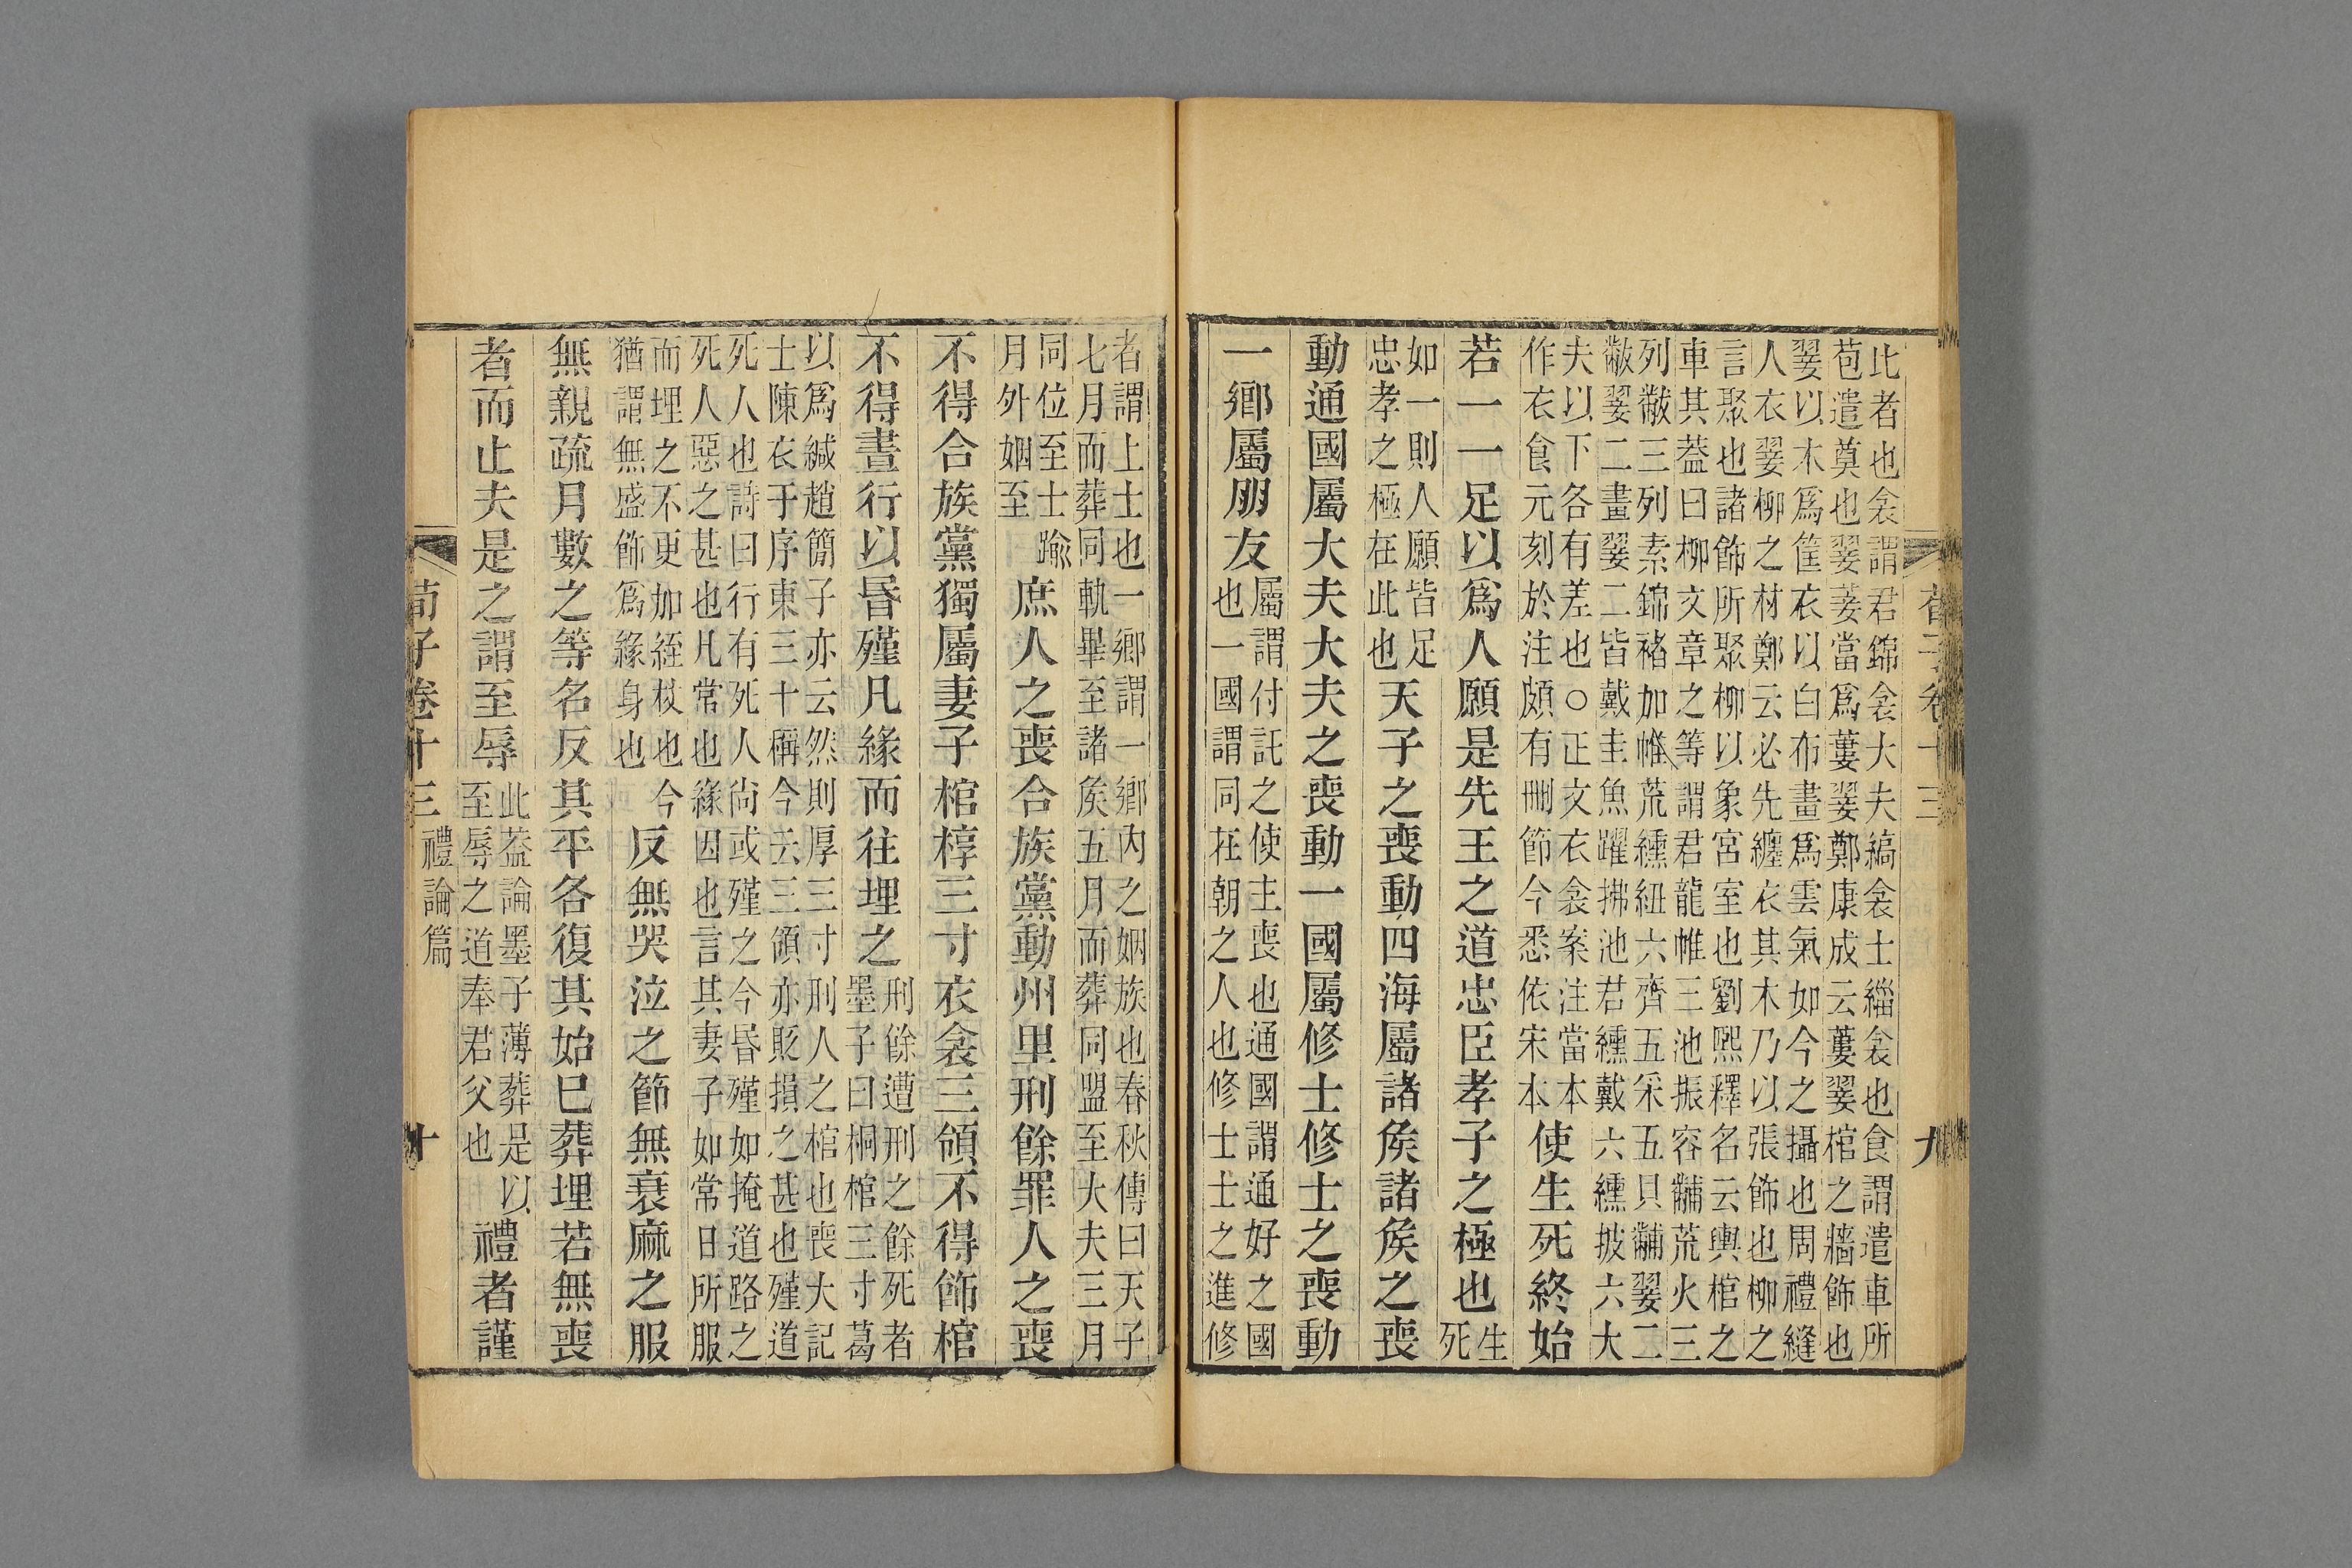 荀子卷十三
九
比者也衾謂君錦衾大夫縞衾士緇衾也食謂遣車所
苞遣奠也翣萋當爲蔞翣鄭康成云蔞翣棺之牆飾也
翣以木爲筐衣以白布畫爲雲氣如今之攝也周禮縫
人衣翣柳之材鄭云必先纏衣其木乃以張飾也柳之
言聚也諸飾所聚柳以象宮室也劉熙釋名云輿棺之
車其葢曰柳文章之等謂君龍帷三池振容黼荒火三
列黻三列素錦褚加帷荒纁紐六齊五采五貝黼翣二
黻翣二畫翣二皆戴圭魚躍拂池君纁戴六纁披六大
夫以下各有差也○正文衣衾案注當本
作衣食元刻於注頗有刪節今悉依宋本
使生死終始
若一一足以爲人願是先王之道忠臣孝子之極也
生
死
如一則人願皆足
忠孝之極在此也
天子之喪動四海屬諸矦諸矦之喪
動通國屬大夫大夫之喪動一國屬修士修士之喪動
一鄉屬朋友
屬謂付託之使主喪也通國謂通好之國
也一國謂同在朝之人也修士士之進修
者謂上士也一鄉謂一鄉內之姻族也春秋傳曰天子
七月而葬同軌畢至諸矦五月而葬同盟至大夫三月
同位至士踰
月外姻至
庶人之喪合族黨動州里刑餘罪人之喪
不得合族黨獨屬妻子棺椁三寸衣衾三領不得飾棺
不得晝行以昬殣凡緣而往埋之
刑餘遭刑之餘死者
墨子曰桐棺三寸葛
以爲緘趙簡子亦云然則厚三寸刑人之棺也喪大記
士陳衣于序東三十稱今云三領亦貶損之甚也殣道
死人也詩曰行有死人尚或殣之今昬殣如掩道路之
死人惡之甚也凡常也緣因也言其妻子如常日所服
而埋之不更加絰杖也今
猶謂無盛飾爲緣身也
反無哭泣之節無衰麻之服
無親疏月數之等名反其平各復其始巳葬埋若無喪
者而止夫是之謂至辱
此葢論墨子薄葬是以
至辱之道奉君父也
禮者謹
荀子卷十三
禮論篇
十